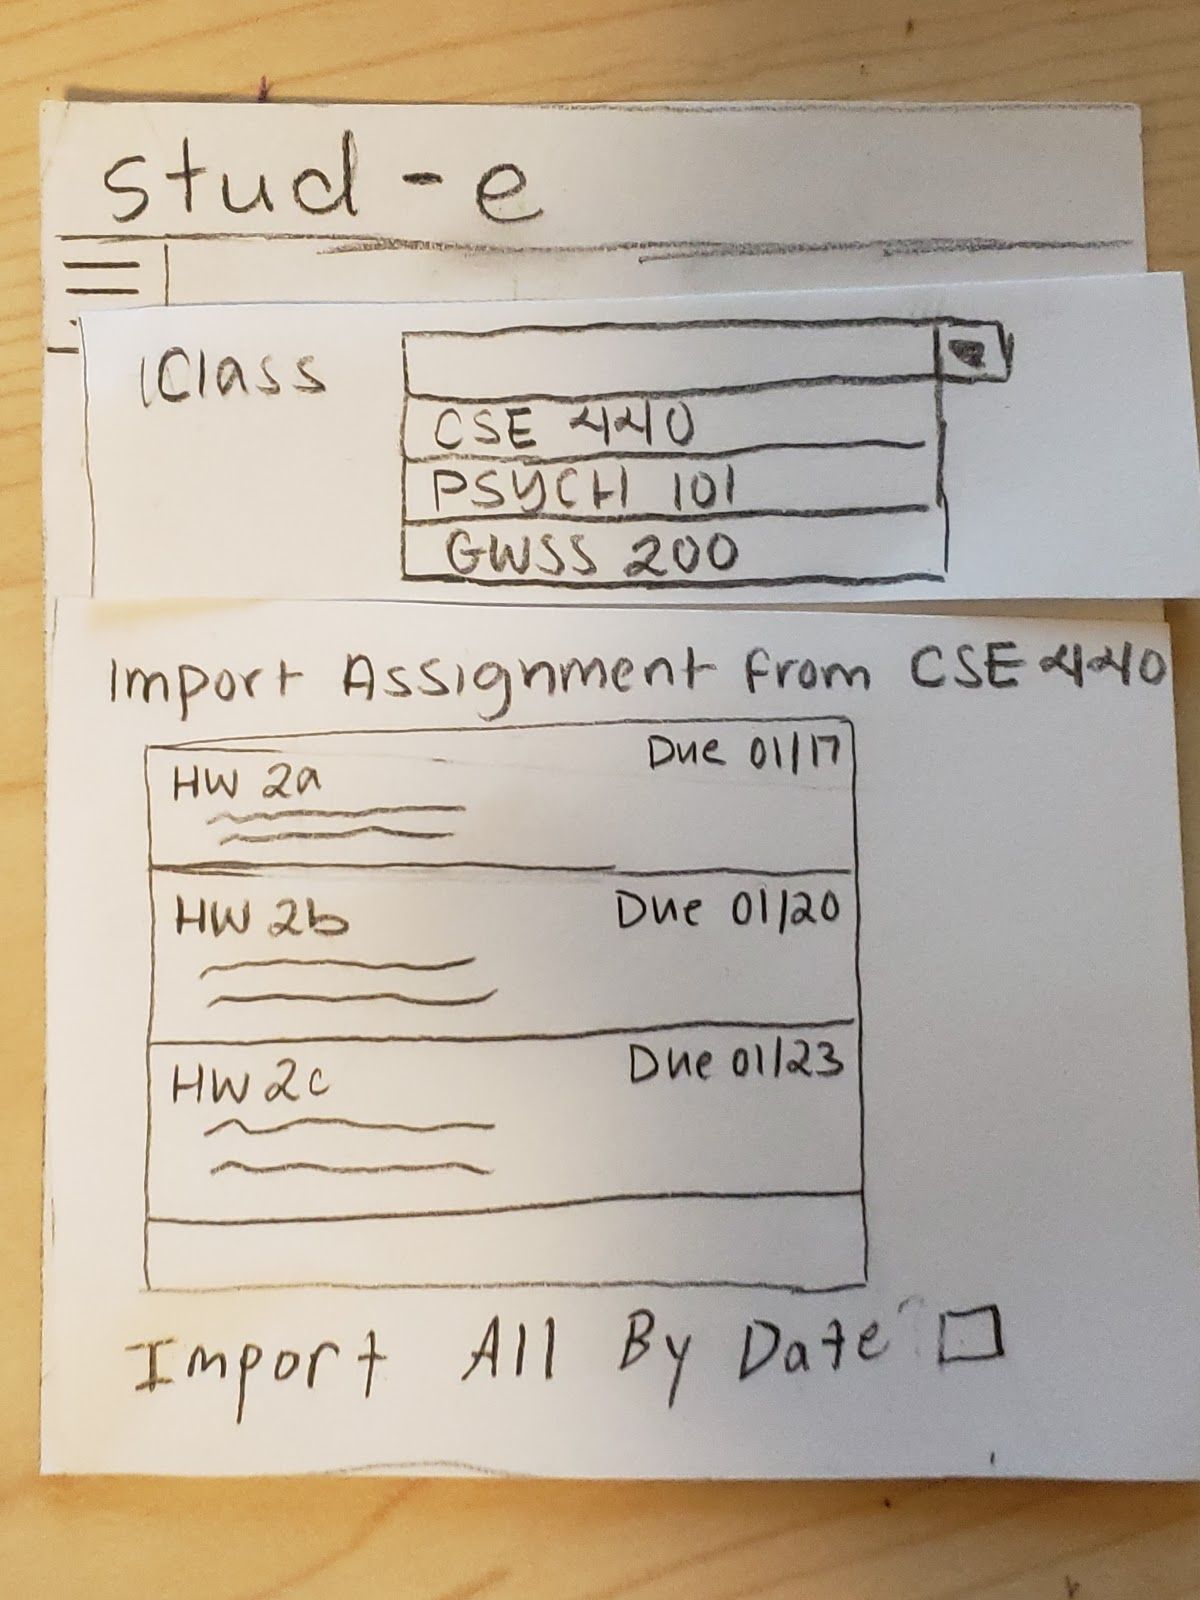 stud-e
Class
CSE 440
PSYCH 101
GWSS 200
Import Assignment from CSE 440
HW 2a Due 01/17
HW 2b Due 01/20
HW 2c Due 01/23
Import All By Date